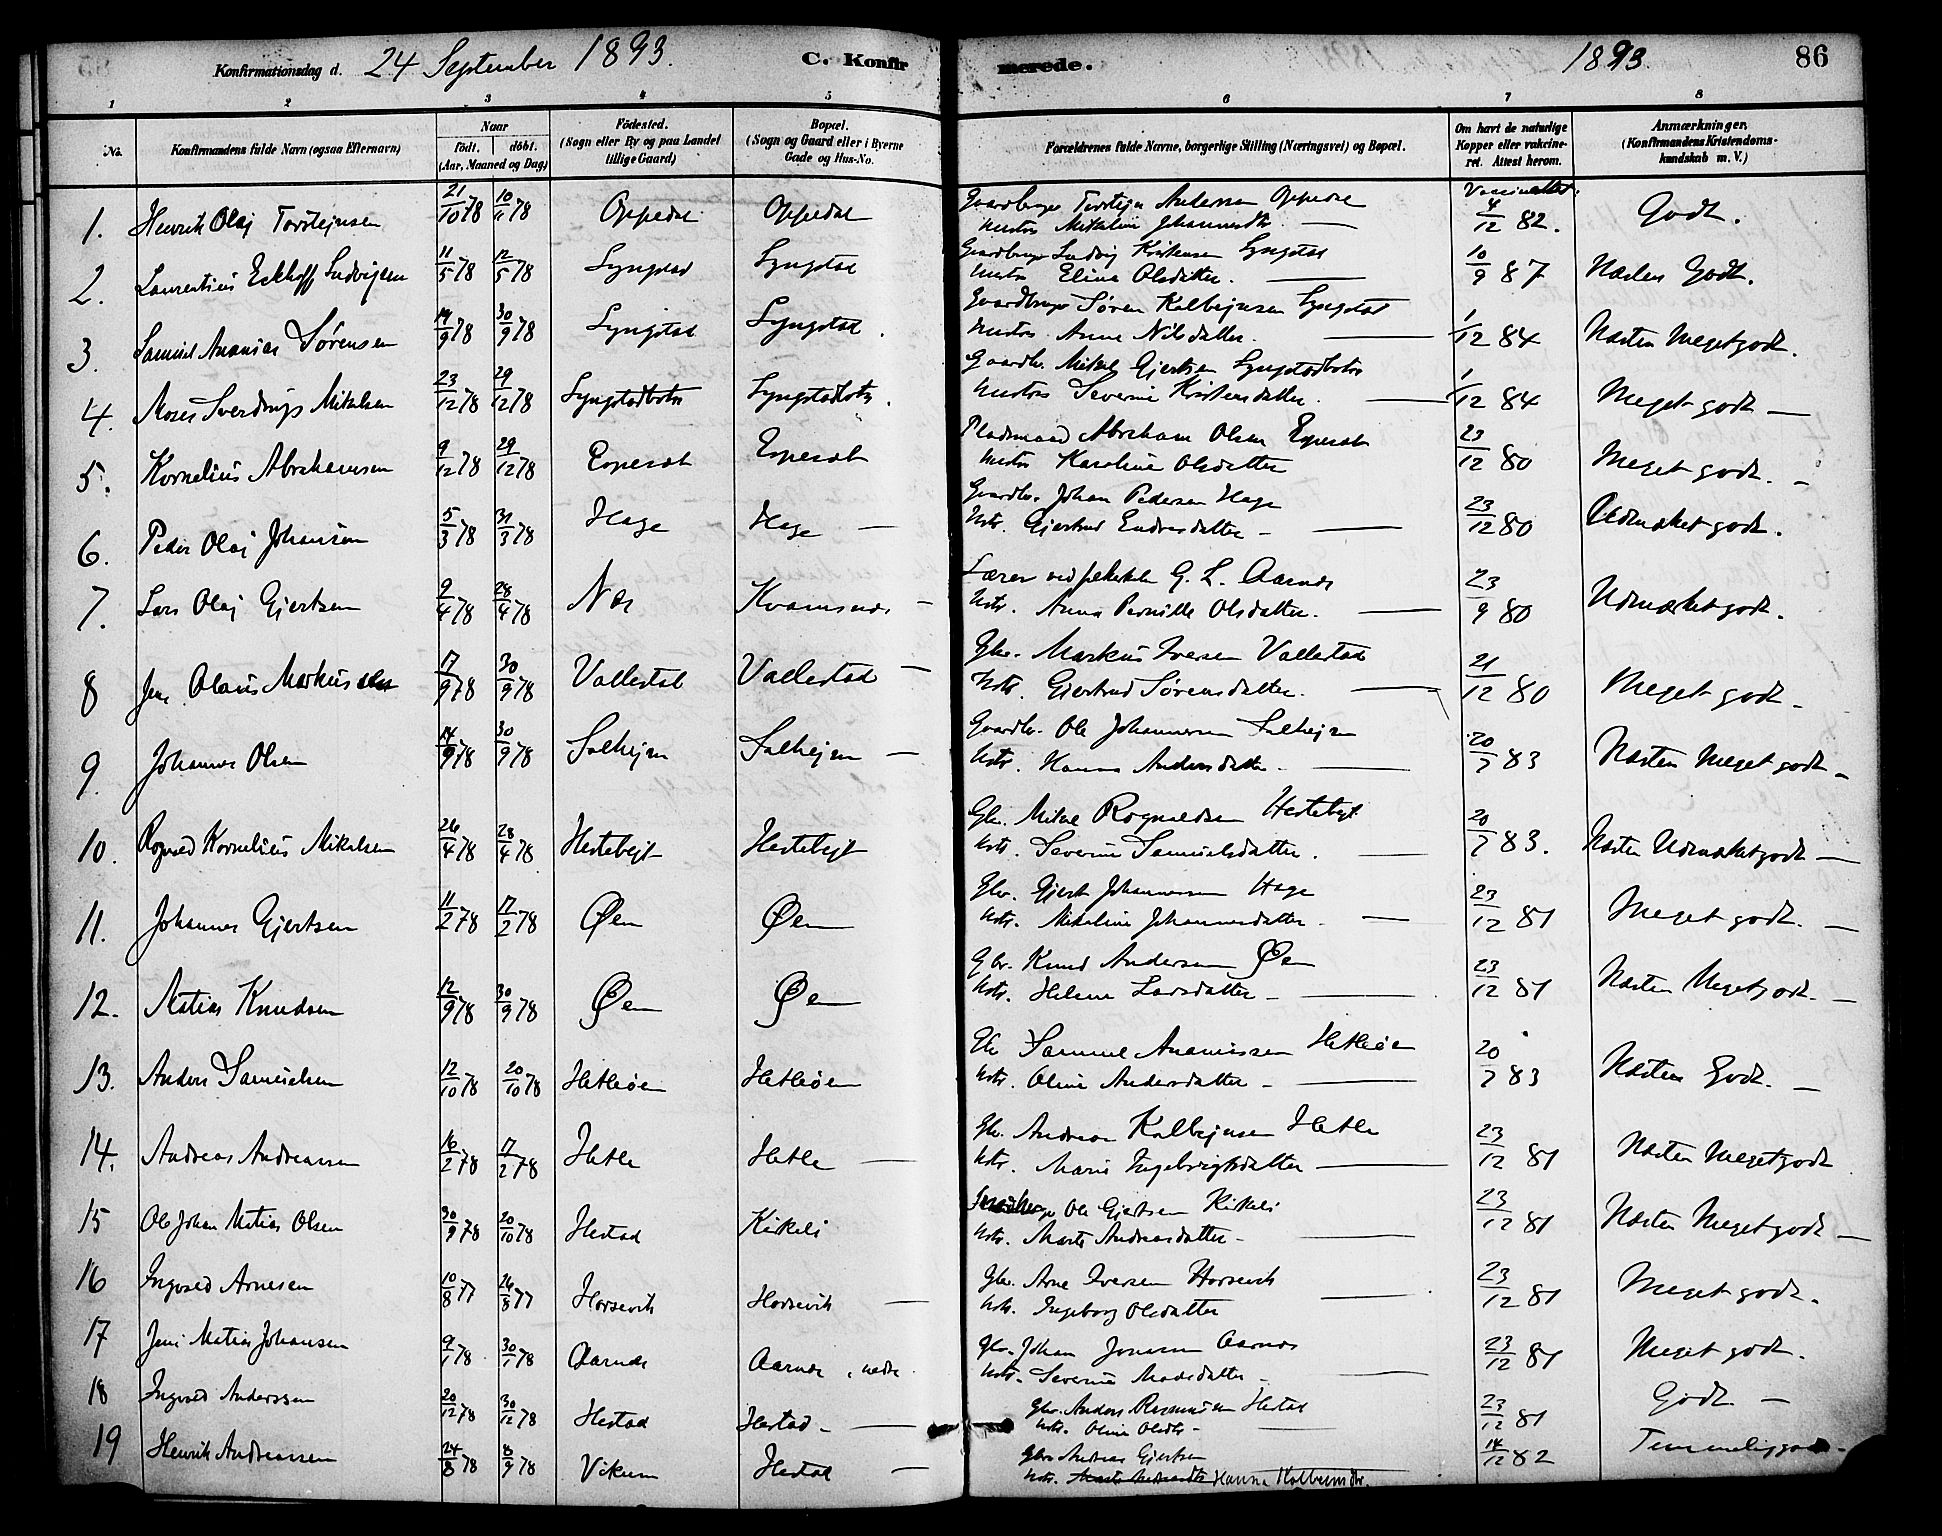 Konfirmationsdag d. 24 September 1893. C. Konfirmerede. 1893 86
1 2 3 4 5 6 7 8
No. Konfirmandens fulde Navn (ogsaa Efternavn) Naar født. døbt. (Aar, Maaned og Dag) Fødested. (Sogn eller By og paa Landet tillige Gaard) Bopæl. (Sogn og Gaard eller i Byerne Gade og Hus-No. Forældrenes fulde Navne, borgerlige Stilling (Næringsvei) og Bopæl. Om havt de naturlige Kopper eller vaccineret. Attest herom. Anmærkninger. (Konfirmandens Kristendomskundskab m. V.)
1. Henrik Olaj Torstejnsen 21/10 78 10/11 78 Oppedal Oppedal Gaardbruger Torstejn Andersen Oppedal
Hustru Mikeline Johannesdtr. — Vaccinattest: 4/12 82. Godt.
2. Laurentius Eckhoff Ludvigsen 11/5 78 12/5 78 Lyngstad Lyngstad Gaardbruger Ludvig Kristensen Lyngstad
Hustru Elina Olsdatter. — 10/9 87 Næsten Godt.
3. Samuel Ananias Sørensen 14/9 78 30/9 78 Lyngstad Lyngstad. Gaardbruger Søren Kolbejnsen Lyngstad
Hustru Anna Nilsdatter. — 1/12 84 Næsten Megetgodt.
4. Moses Sverdrup Mikelsen 23/12 78 29/12 78 Lyngstadbotn Lyngstadbotn. Gaardbr. Mikel Gjertsen Lyngstadbotn
Hustru Severine Kristensdatter. — 1/12 84 Meget godt —
5. Kornelius Abrahamsen 9/12 78 29/12 78 Espesæt Espesæt Pladsmand Abraham Olsen Espesæt
Hustru Karoline Olsdatter 23/12 80 Meget godt. -
6. Peder Olaj Johansen 5/3 78 31/3 78 Hage Hage — Gaardbr. Johan Pedersen Hage
Hstr. Gjertrud Endresdatter - — 23/12 80 Udmærket godt.
7. Lars Olaj Gjertsen 2/4 78 28/4 78 Næs Kvamsnæs - Lærer ved folkeskolen G. L. Aarnæs
Hstr. Anna Pernille Olsdatter. — 23/9 80 Udmærket godt.
8 Jens Olaus Markussen 17/9 78 30/9 78 Vallestad Vallestad - Gbr. Markus Iversen Vallestad
Hstr. Gjertrud Sørensdatter. — 21/12 80 Meget godt -
9. Johannes Olsen 14/9 78 30/9 78 Solhejm Solhejm — Gaardbr. Ole Johannessen Solhejm
Hstr. Hanna Andersdatter. — 20/7 83 Næsten Meget godt -
10. Rognald Kornelius Mikelsen 26/4 78 28/4 78 Hestebejt Hestebejt Gbr. Mikal Rognaldsen Hestebejt
Hstr. Severine Samuelsdatter. — 20/7 83. Næsten Udmærketgodt —
11. Johannes Gjertsen 11/2 78 17/2 78 Øen Øen Gbr. Gjert Johannessen Hage
Hstr. Mikeline Johannesdatter. — 23/12 81 Meget godt. —
12. Matias Knudsen 12/9 78 30/9 78 Øen Øen Gbr. Knud Andersen Øen
Hstr. Helene Larsdatter - — 23/12 81 Næsten Megetgodt. —
13. Anders Samuelsen 12/10 78 20/10 78 Hetleøen Hetleøen Gbr Samuel Ananiassen Hetleøen
Hstr. Oline Andersdatter - — 20/7 83 Næsten Godt. —
14. Andreas Andreassen 16/2 78 17/2 78 Hetle Hetle — Gbr. Andreas Kolbejnsen Hetle
Hstr. Marie Ingebrigtsdatter — 23/12 81 Næsten Megetgodt
15 Ole Johan Matias Olsen 30/9 78 20/10 78 Hestad Kirkeli Ole Gjertsen Kirkeli
Hstr. Marte Andreasdatter - — 23/12 81 Næsten Meget godt —
16 Ingvald Arnesen 10/8 77 26/8 77 Horsevik Horsevik — Gbr. Arne Iversen Horsevik
Hstr. Ingeborg Olsdatter — 23/12 81 Meget godt.
17 Jens Matias Johansen 9/1 78 30/1 78 Aarnæs Aarnæs, nedre Gbr. Johan Jonsen Aarnæs
Hstr. Severine Madsdatter - — 23/12 81 Meget godt.
18 Ingvald Anderssen 20/12 78 30/12 78 Hestad Hestad - — Gbr. Anders Rasmussen Hestad
Hstr. Oline Olsdtr - — 23/12 81 Godt —
19 Henrik Andreassen 24/8 78 8/9 78 Vikum Hestad — Gbr Andreas Gjertsen
Hstr. Hanna Kolbeinsdtr. 14/12 82 Temmeliggodt -